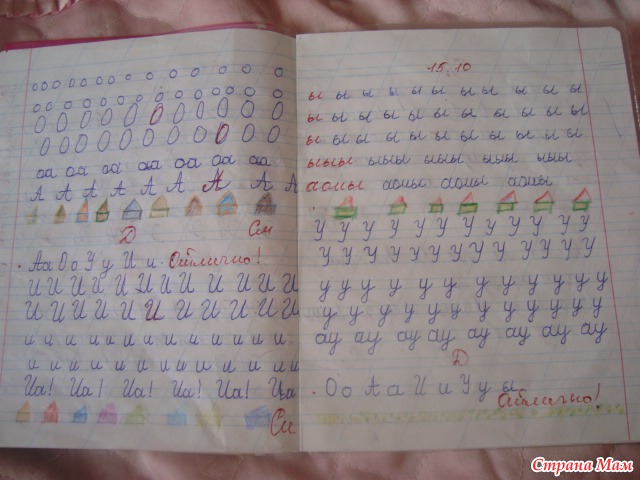 о о о о о о о о о о о о о о
о о о о о о о о о о о о о о о о
О О О О О О О О О О О
О О О О О О О О О О О
оа оа оа оа оа оа оа
А А А А А А А А А
Д См
Аа Оо Уу И и. Отлично!
И И И И И И И И И И И И
И И И И И И И И И И И
и и и и и и и и и и и и
и и и и и и и и и и и и
Иа! Иа! Иа! Иа! Иа! Иа
См
15.10
ы ы ы ы ы ы ы ы ы ы ы
ы ы ы ы ы ы ы ы ы ы ы
ы ы ы ы ы ы ы ы ы ы ы
ыыы ыыы ыыы ыыы ыыы
аоиы аоиы аоиы аоиы
У У У У У У У У У У У У
У У У У У У У У У У У У
у у у у у у у у у у у у
у у у у у у у у у у у у
ау ау ау ау ау ау ау ау
Д
Оо Аа И и У у ы
Отлично!
Страна Мам